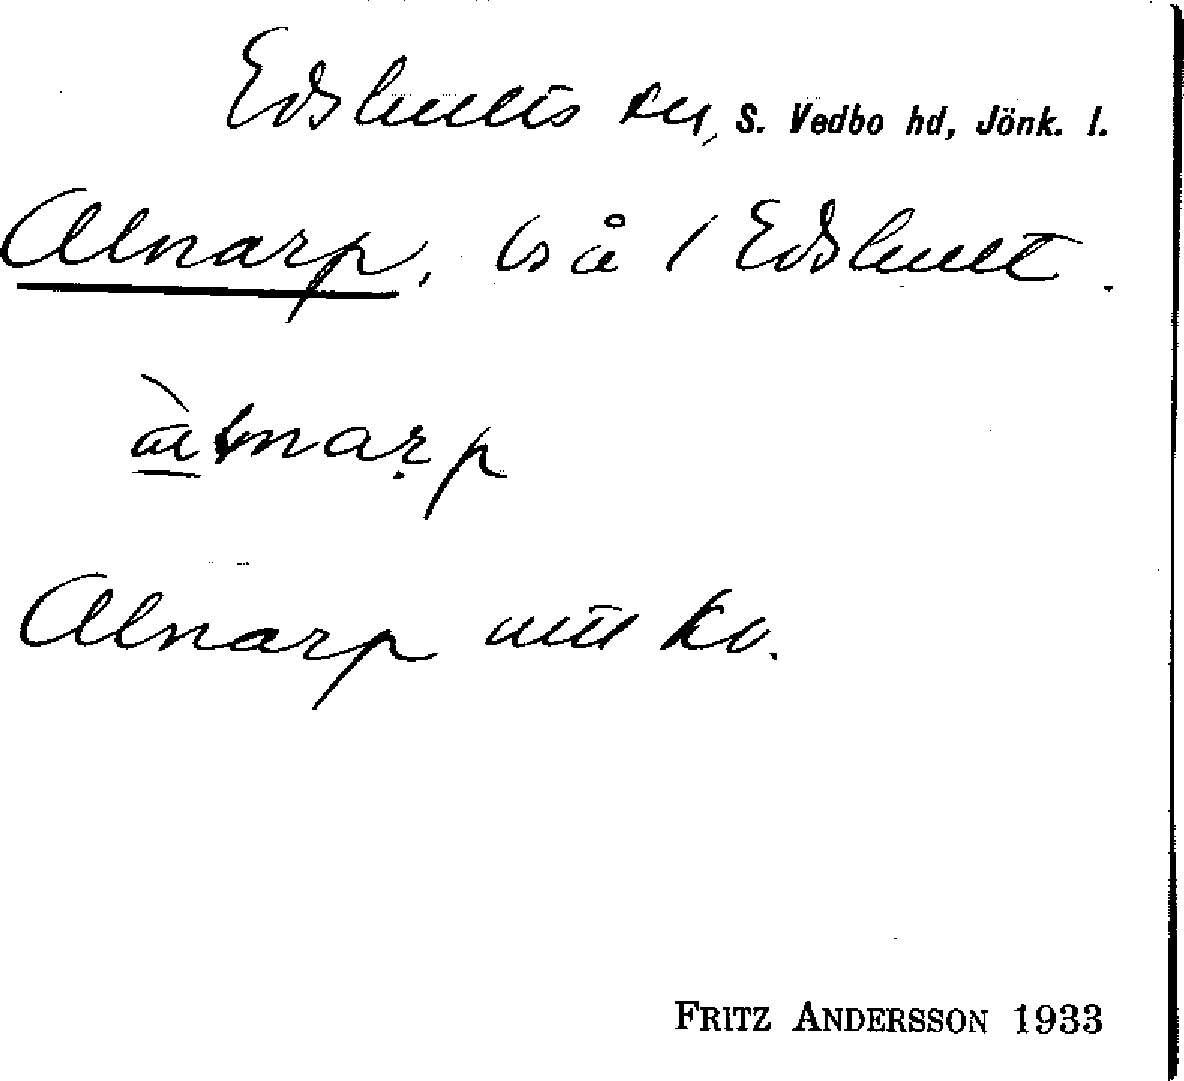 Edshults sn, S. Vedbo hd, Jönk. l.
Alnarp, bs å / Edshult.
Alnarp utt ko.
FRITZ ANDERSSON 1933